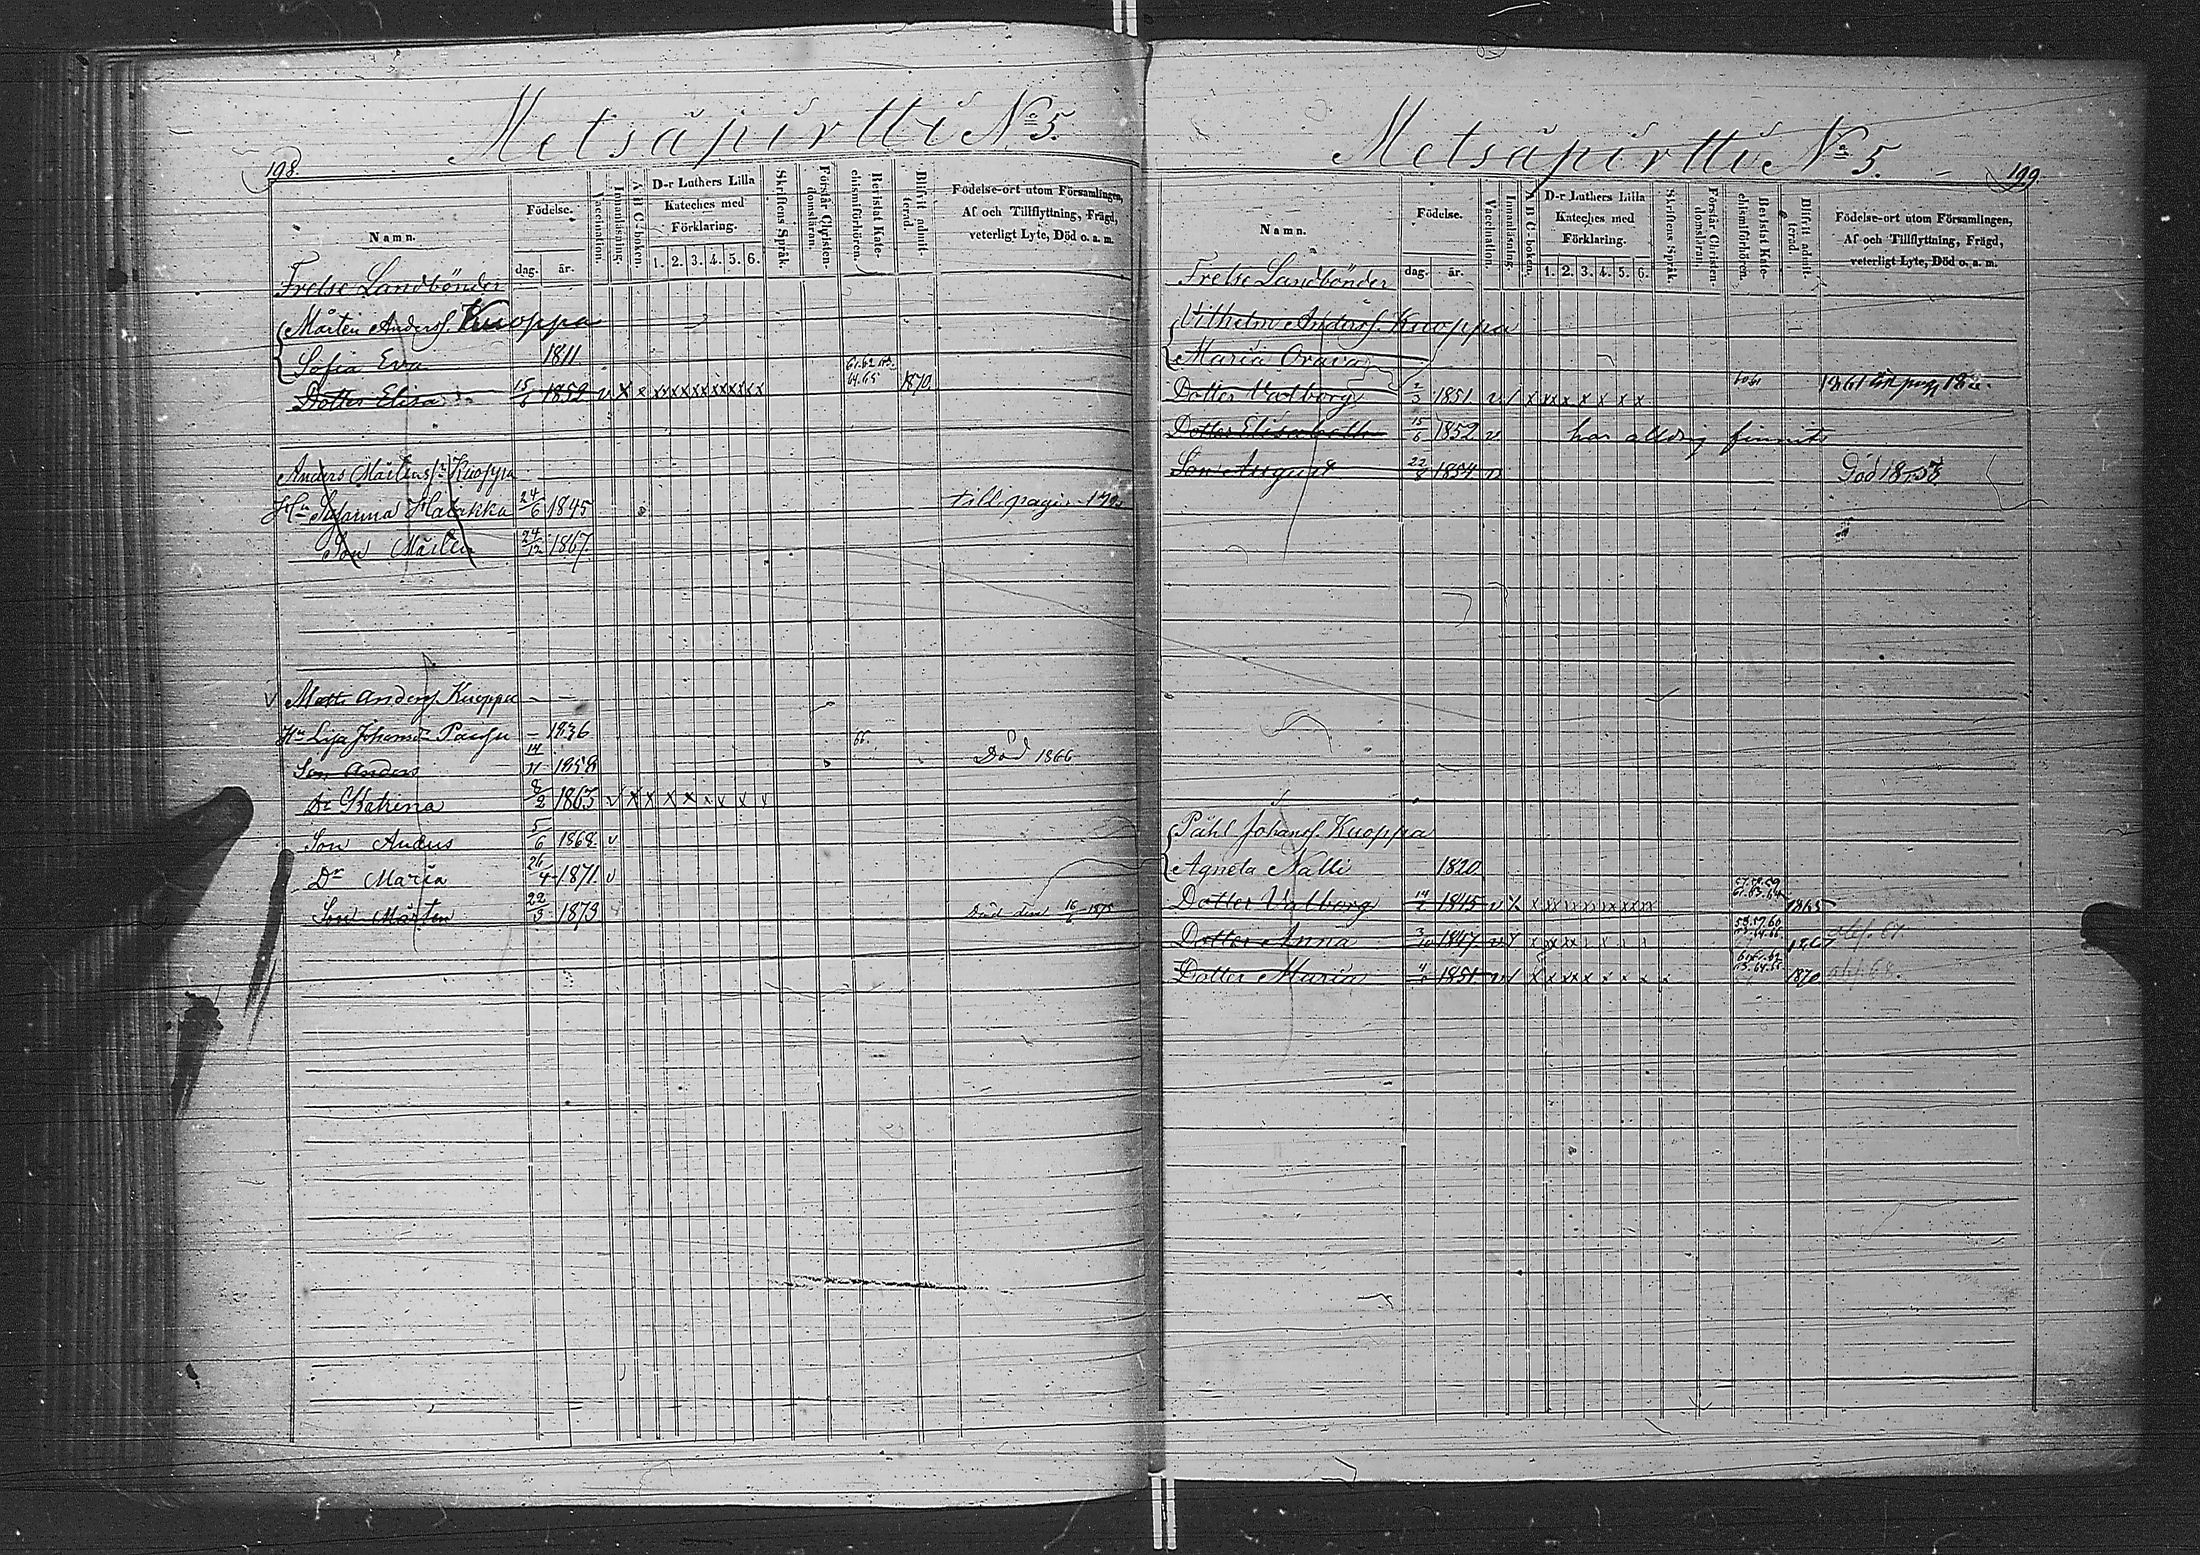 198.
Metsäpirtti No 5.
Namn.
Födelse.
dag.
år.
Vaccination.
Innanläsning.
A B C-boken.
D-r Luthers Lilla
Kateches med
Förklaring.
1. 2. 3. 4. 5. 6.
Skriftens Språk.
Förstår Christen-
domsläran.
Bevistat Kate-
chismiförhören.
Blifvit admit-
terad.
Födelse-ort utom Församlingen,
Af och Tillflyttning, Frägd,
veterligt Lyte, Död o. a. m.
Frelse Landbönder
Mårten Andersf. Kuoppa
Sofia Eva 1811
Dotter Elisa 15/6 1852 v x x xxxxxxxxxx 64.65 1870
Anders Mårtensf. Kuoppa
Hu Susanna Hatakka 24/6 1845 till pagin
Son Mårten 24/12 1867.
v Matts Andersf. Kuoppa - -
Hu Lisa Johansdr - 1836 66.
Son Anders 14/11 1858 Död 1866
Dr Katrina 8/2 1863 v x x x x x v x x v
Son Anders 5/6 1868 v
Dr Maria 26/4 1871 v
Son Mårten 22/3 1873 Död den 16/6 1875
Metsäpirtti No 5.
199.
Namn.
Födelse.
dag.
år.
Vaccination.
Innanläsning.
A B C-boken.
D-r Luthers Lilla
Kateches med
Förklaring.
1. 2. 3. 4. 5. 6.
Skriftens Språk.
Förstår Christen-
domsläran.
Bevistat Kate-
chismiförhören.
Blifvit admit-
terad.
Födelse-ort utom Församlingen,
Af och Tillflyttning, Frägd,
veterligt Lyte, Död o. a. m.
Frelse Landbönder
Vilhelm Andersf. Kuoppa
Maria Orava
Dotter Valborg 2/3 1851 v / x xx x x x x x 60 61 1861 till pag
Dotter Elisabeth 15/6 1852 v har aldrig funnits
Son August 22/8 1854 v Död 1858
Påhl Johansf. Kuoppa
Agneta Nalli 1820
Dotter Valborg 1845 v x x xxxxxxxxx 1865
Dotter Anna 3/10 1847 v x xxxx 1867 abs. 67
Dotter Maria 1851 v / x xxxx x x x x 1870 abs. 68.